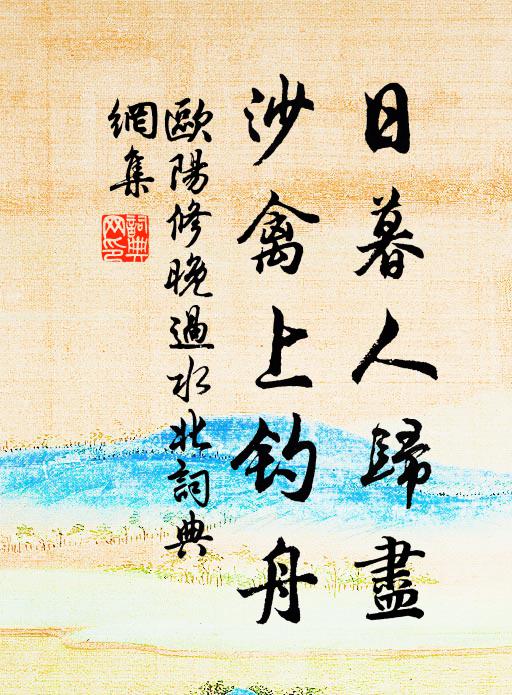 日暮人歸盡
沙禽上釣舟
歐陽修晚過水北詞典
網集
詞典
网印